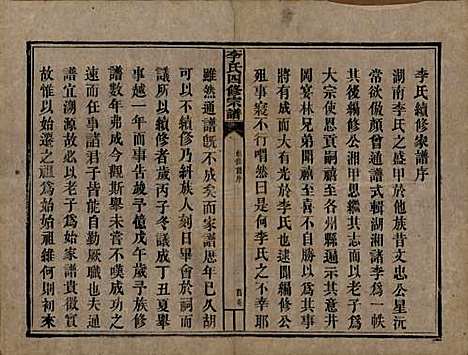 李氏續修家譜序
湖南李氏之盛甲於他族昔文忠公星沅
常欲倣顏曾通譜式輯湖湘諸李爲一帙
其後編修公湘甲思繼其志而以老子爲
大宗使恩貢嗣禧至各州縣遍示其意
闔宴林兄弟聞嗣禧至各勝以爲其事
將有成於大有光於李氏也逮聞編修公
殂事寢不行喟然曰是何李氏之不幸耶
李氏四修宗譜
續修譜序
首卷
雖然通譜旣不成矣而家譜歷年已久胡
可以不續修乃糾族人刻日畢會於祠而
修譜之議成丙子冬議成丁丑夏舉
事越一年而事告竣予憶戊午歲予族修
譜數年弗成今觀斯舉未嘗不嘆成功之
速而任事諸君子皆能自勤厥職也夫通
譜宜溯源故以老子爲始家譜貴徵實
故惟以始遷之祖爲始祖雖何則初來